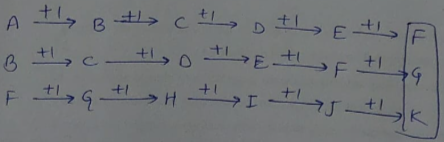 A +1→ B +1→ C +1→ D +1→ E +1→ F
B +1→ C +1→ D +1→ E +1→ F +1→ G
F +1→ G +1→ H +1→ I +1→ J +1→ K